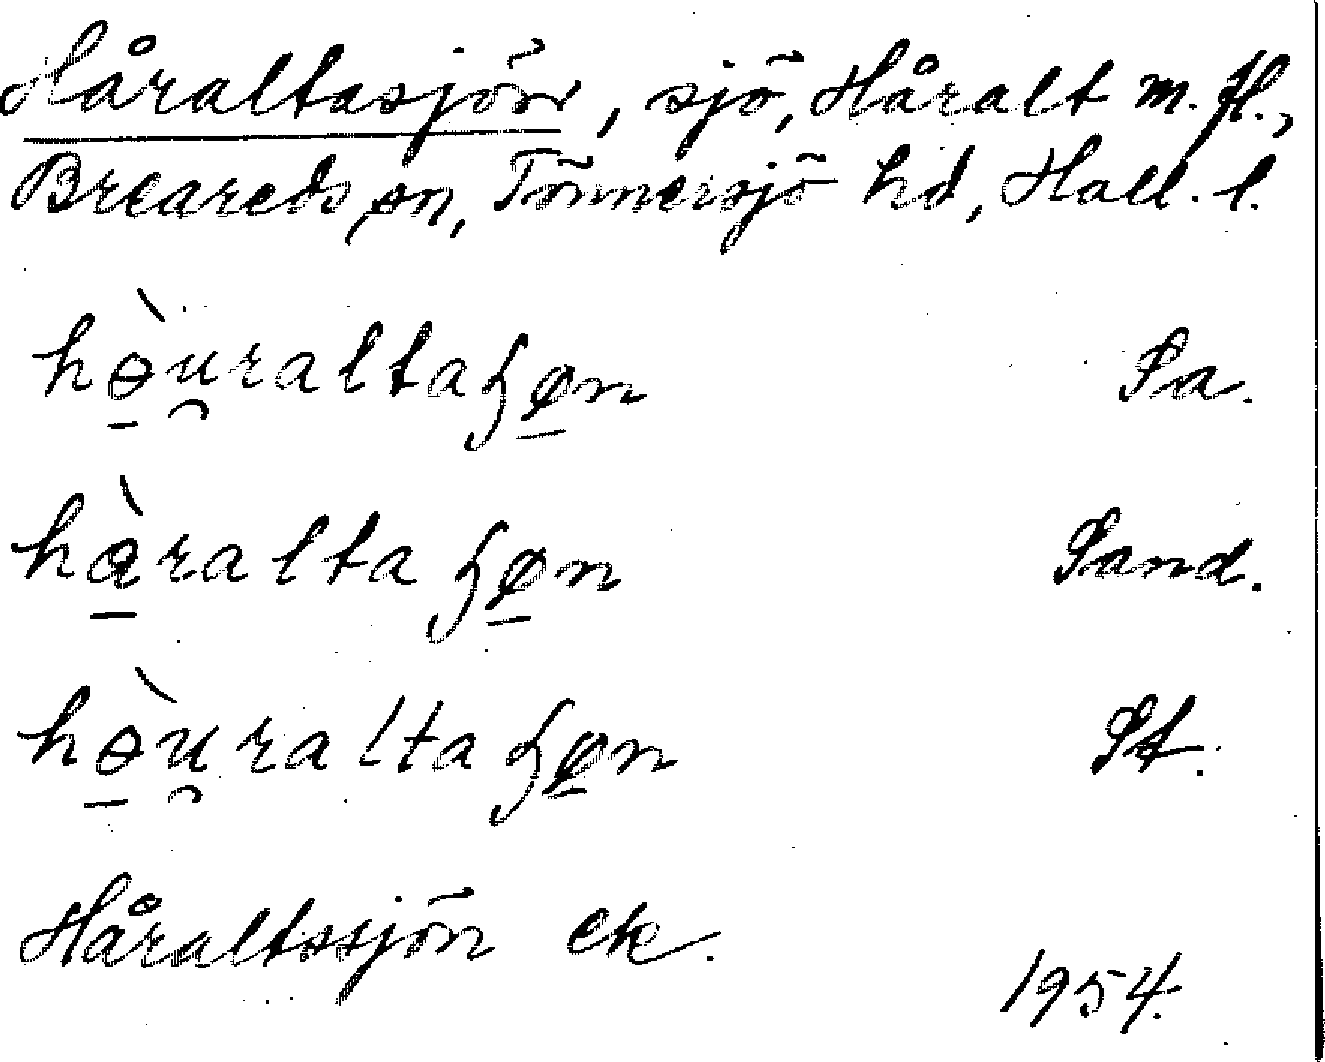 Håraltasjön, sjö, Håralt m. fl.,
Breareds sn, Tönnersjö hd, Hall. l.
hə̱̀u̯raltaɧø̱n Sa.
hà̱raltaɧø̱n Sand.
hə̱̀u̯raltaɧø̱n St.
Håraltssjön ek.
1954.